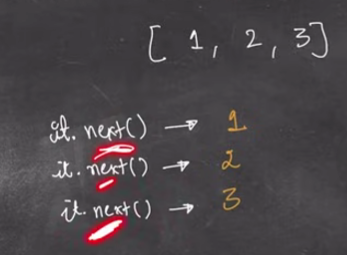 [ 1, 2, 3]
it. next() → 1
it. next() → 2
it. next() → 3